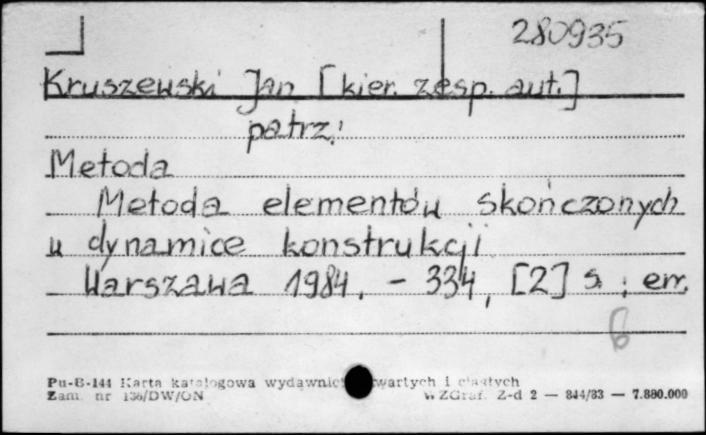 280935
Kruszewski Jan [kier. zesp. aut.]
patrz:
Metoda
Metoda elementów skończonych
w dynamice konstrukcji
Warszawa 1984. - 334, [2] s. ; err.
6
Pu-B-144 Karta katalogowa wydawnictw zwartych i ciągłych
Zam. nr 136/DW/ON WZGraf. Z-d 2 — 844/83 — 7.880.000